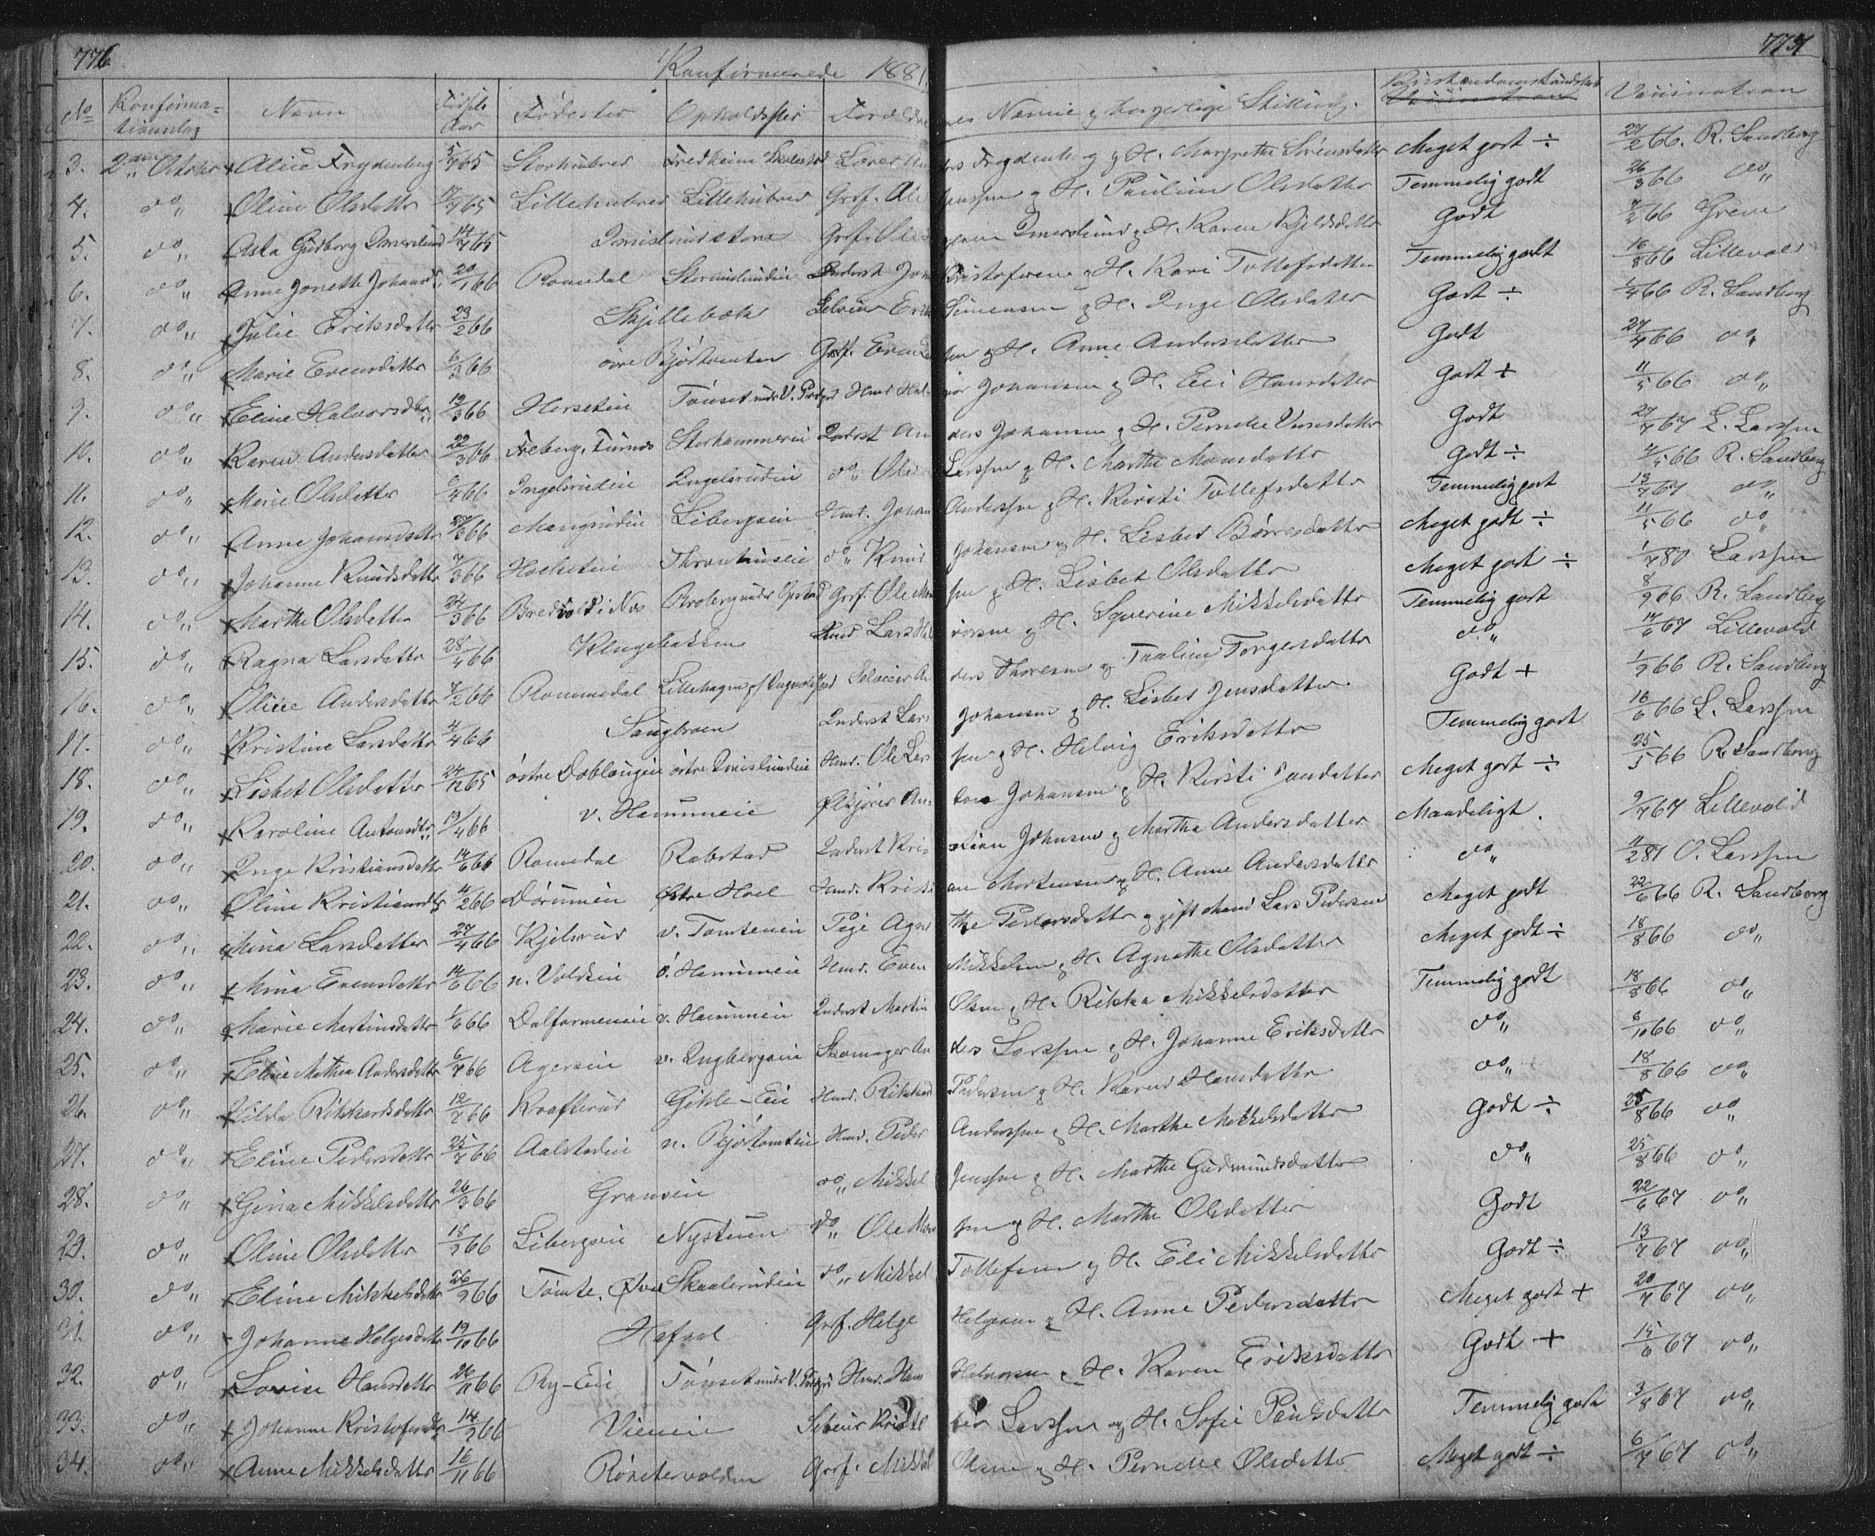 776 Konfirmerede 1881. 777
No Konfirma=tionsdag Navn Fødsels Aar Fødested Opholdssted Forældrenes Navne og borgerlige Stilling. Kristendomskundskab Vaccination
3. 2den Oktober Alice Frydenberg 5/7 65 Storhubred Fredheim Lærer Anders Frydenberg og H. Margrethe Sørensdatter Meget godt ÷ 27/2 66. R. Sandberg
4. do „ Oline Olsdatter 17/7 65 Lillehubred Lillehubred Grbf. Ole Jenssen og H. Pauline Olsdatter Temmelig godt 26/3 66 do „
5. do „ Asta Gudborg Imerslund 14/7 65 Imislundstore Grbf. Ole Imerslund og H. Karen Kjeldsdatter Godt 7/2 66 Greve
6. do „ Anne Jonette Johans 20/1 66 Romedal Inderst Kristofersen og H. Kari Tollefsdatter Temmelig godt 16/8 66 Lillevold
7. do „ Julie Eriksdatter 23/2 66 Skjillebæk Selveier Erik Simensen og H. Inge Olsdatter Godt ÷ 1/4 66 R. Sandberg
8. do „ Marie Evensdatter 6/3 66 øvre Bjørtomten Grbf. Even og H. Anne Andersdatter Godt 27/4 66 do „
9. do „ Eline Halvorsdtr 19/3 66 Hersetein Tønset under V. Hmd Halvor Johansen og H. Eli Hansdatter Godt + 11/5 66 do „
10. do „ Karen Andersdatter 22/3 66 Freberg, Furnes Storhammerein Inderst Anders Johansen og H. Pernelle Godt 27/7 67 L. Larssen
11. do „ Marie Olsdatter 6/4 66 Ingelsrudeie Ingelsrudeie do „ Ole Larssen og H. Marthe Monsdatter Godt ÷ 66 R. Sandberg
12. do „ Anne Johansdatter 66 Mangrudeie Libergseie Hmd. Johan Anderssen og H. Kirsti Tollefsdatter Temmelig godt 13/7 67 do „
13. do „ Johanne Knudsdatter 7/3 66 Thronhuseie do „ Knud Johansen og H. Lisbet Børresdatter Meget godt ÷ 11/5 66 do „
14. do „ Marthe Olsdatter 24/3 66 Bredvold i Næs Broberg under Grbf. Ole og H. Lisbet Olsdatter Meget godt ÷ 1/7 80 Larssen
15. do „ Ragna Larsdatter 28/4 66 Klingebakken Lars Halvorsen og H. Syverine Mikkelsdatter Temmelig godt 8/9 66 R. Sandberg
16. do „ Oline Andersdatter 7/2 66 Rommedal Lillehagen Selveier Anders Thoresen og Pauline Torgersdatter do „ 14/6 67 Lillevold
17. do „ Kristine Larsdatter 4/4 66 Sangbroen Inderst Lars Johansen og H. Lisbet Jensdatter Godt + 1/9 66 R. Sandberg
18. do „ Lisbet Olsdatter 24/12 65 østre Doblougeie østre Imislundeie Hmd. Ole Larssen og H. Helvig Eriksdatter Temmelig godt 16/6 66 L. Larssen
19. do „ Karoline Antonsdtr 19/4 66 v. Hammeie Anton Johansen og H. Kirsti Meget godt ÷ 25/5 66 R. Sandberg
20. do „ Inge Kristiansdatter 14/6 66 Romedal Robstad Inderst Kristian Johnsen og Martha Andersdatter Maadeligt. 9/7 67 Lillevold
21. do „ Oline Kristiansdtr 4/2 66 Dørumeie Østre Hoel Hmd. Kristian Mortensen og H. Anne Andersdatter do „ 4/2 81 O. Larssen
22. do „ Mina Larsdatter 27/4 66 Kjelsrud v. Tomteneie Pige Agnethe Pedersdatter og gift Mand Lars Pedersen Meget godt 22/6 66 R. Sandberg
23. do „ Mina Evensdatter 14/6 66 n. Voldeie v. Hammeie Hmd. Even Mikkelsen og H. Agnethe Olsdatter Meget godt ÷ 18/8 66 do „
24. do „ Marie Martinsdatter 1/6 66 Dalfarmeneie v. Hammeie Inderst Martin Olsen og H. Rikka Mikkelsdatter Temmelig godt 18/8 66 do „
25. do „ Eline Mathea Andersdatter 6/7 66 Agerseie v. Ingbergseie Skomager Anders Larssen og H. Johanne Eriksdatter do „ 6/10 66 do „
26. do „ Hilda Rikhardsdatter 12/7 66 Krafterud Gihle-Eie Hmd. Rikhard Pedersen og H. Karen Hansdatter do „ 18/8 66 do „
27. do „ Eline Pedersdatter 25/7 66 Aalstadeie n. Bjørtomteie Hmd. Peder Anderssen og H. Marthe Mikkelsdatter Godt ÷ 25/8 66 do „
28. do „ Gina Mikkelsdatter 26/3 66 Granseie do „ Mikkel Jenssen og H. Marthe Gudmundsdatter do „ 25/8 66 do „
29. do „ Oline Olsdatter 18/9 66 Libergseie Nystuen do „ Ole og H. Marthe Olsdatter Godt 22/6 67 do „
30. do „ Eline Mikkelsdatter 26/9 66 Tomte, Øvre Skaalerudeie do „ Mikkel Tollefsen og H. Eli Mikkelsdatter Godt ÷ 13/7 67 do „
31. do „ Johanne Helgesdatter 19/10 66 Hafsal Grbf. Helge Helgesen og H. Anne Pedersdatter Meget godt + 20/7 67 do „
32. do „ Lovise Hansdatter 26/11 66 Ry-Eie Tønset under V. Hmd. Hans Halvorsen og H. Karen Eriksdatter Godt + 15/6 67 do „
33. do „ Johanne Kristofersdtr 14/9 66 Vieneie Kristofer Larssen og H. Sofie Paulsdatter Temmelig godt 3/8 67 do „
34. do „ Anne Mikkelsdatter 16/11 66 Rønstervolden Grbf. Mikkel Olsen og H. Pernelle Olsdatter Meget godt ÷ 6/7 67 do „